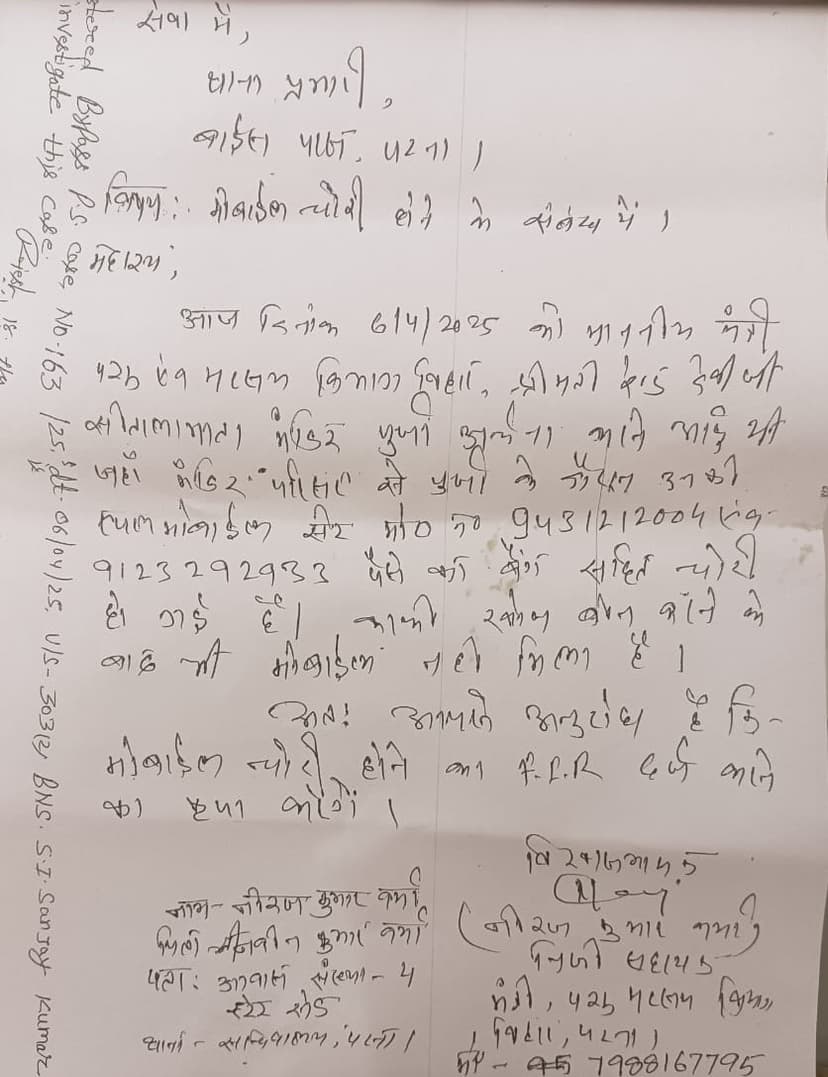 सेवा में,
थाना प्रभारी,
बाईपास, पटना।
विषय: मोबाईल चोरी होने के संबंध में।
महाशय,
आज दिनांक 6/4/2025 को माननीय मंत्री
पशु एवं मत्स्य विभाग बिहार, श्रीमती रेणु देवी जी
सीतलामाता मंदिर पुजा अर्चना करने आई थी
जहाँ मंदिर परिसर से पुजा के दौरान उनकी
मोबाईल मो० न० 9431212004 एंव
9123292933 पैसे का बैग सहित चोरी
हो गई है। काफी खोज बीन करने के
बाद भी मोबाईल नही मिला है।
अत: आपसे अनुरोध है कि-
मोबाईल चोरी होने का F.I.R दर्ज करने
का कृपा करेंगे।
विश्वासभाजक
(नीरज कुमार वर्मा)
निजी सहायक
मंत्री, पशु मत्स्य विभाग
बिहार, पटना।
मो- 7988167795
नाम- नीरज कुमार वर्मा
पिता कुमार वर्मा
पता: आवास संख्या- 4
स्टेट रोड
थाना- सचिवालय, पटना।
stered Bypass P.S. Case No-163/25, dt-06/04/25, U/S-303(2) BNS. S.I. Sanjay Kumar
investigate this case.